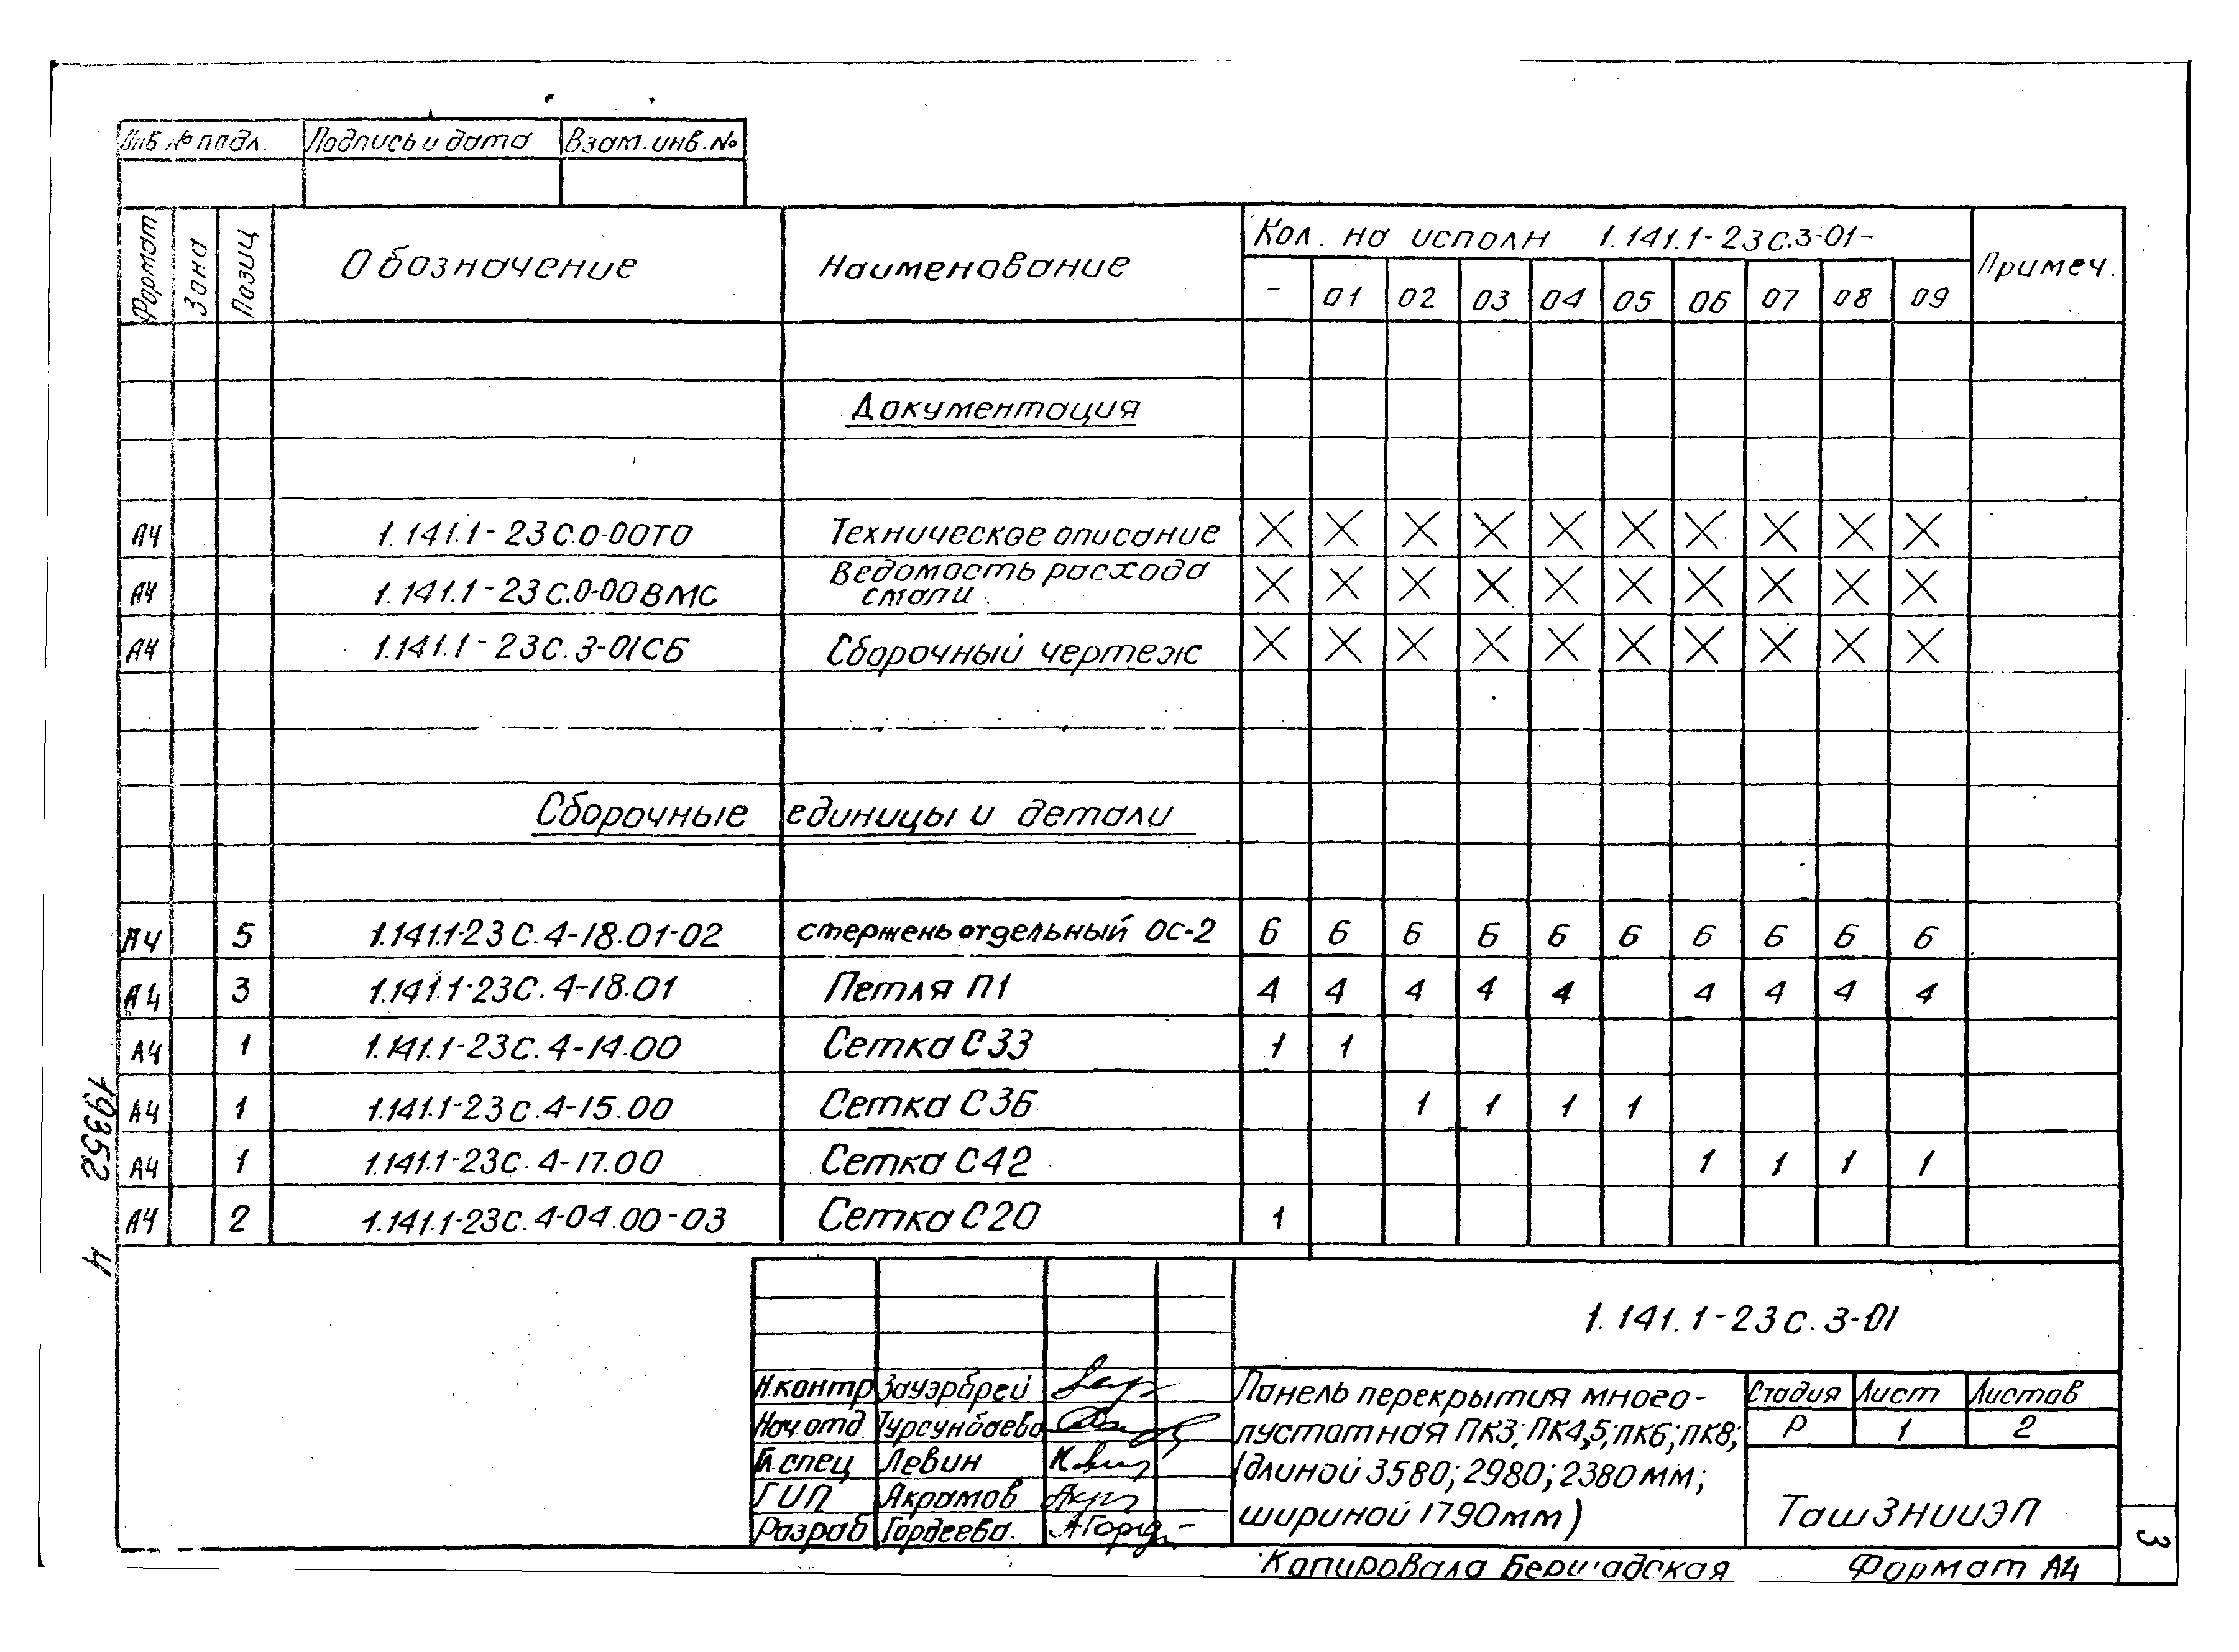 Инв. № подл. Подпись и дата Взам. инв. №
Формат Зона Позиц Обозначение Наименование Кол. на исполн 1.141.1-23с.3-01- Примеч.
- 01 02 03 04 05 06 07 08 09
Документация
А4 1.141.1-23С.0-00ТО Техническое описание X X X X X X X X X X
А4 1.141.1-23С.0-00ВМС Ведомость расхода стали X X X X X X X X X X
А4 1.141.1-23С.3-01СБ Сборочный чертеж X X X X X X X X X X
Сборочные единицы и детали
А4 5 1.141.1-23С.4-18.01-02 стержень отдельный ОС-2 6 6 6 6 6 6 6 6 6 6
А4 3 1.141.1-23С.4-18.01 Петля П1 4 4 4 4 4 4 4 4 4
А4 1 1.141.1-23С.4-14.00 Сетка С33 1 1
А4 1 1.141.1-23С.4-15.00 Сетка С36 1 1 1 1
А4 1 1.141.1-23С.4-17.00 Сетка С42 1 1 1 1
А4 2 1.141.1-23С.4-04.00-03 Сетка С20 1
19352 4
1.141.1-23С.3-01
Н.контр Зауэрбрей
Нач.отд Турсунбаева
Гл.спец Левин
ГИП Акрамов
Разраб Гордеева.
Панель перекрытия много-
пустотная ПК3; ПК4,5; ПК6; ПК8;
(длиной 3580; 2980; 2380 мм;
шириной 1790мм)
Стадия Лист Листов
Р 1 2
ТашЗНИИЭП
3
Копировала Бершадская Формат А4